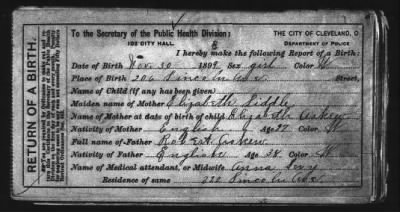 RETURN OF A BIRTH.
To the Secretary of the Public Health Division: THE CITY OF CLEVELAND, O
103 CITY HALL. DEPARTMENT OF POLICE
I hereby make the following Report of a Birth:
Date of Birth Nov. 30 1899 Sex girl Color W
Place of Birth 206 Lincoln Ave Street,
Name of Child (if any has been given)
Maiden name of Mother Elizabeth Liddle
Name of Mother at date of birth of child Elizabeth Askew
Nativity of Mother English Age 37 Color W
Full name of Father Robert Askew
Nativity of Father English Age 38 Color W
Name of Medical attendant, or Midwife Anna
Residence of same Lincoln Ave